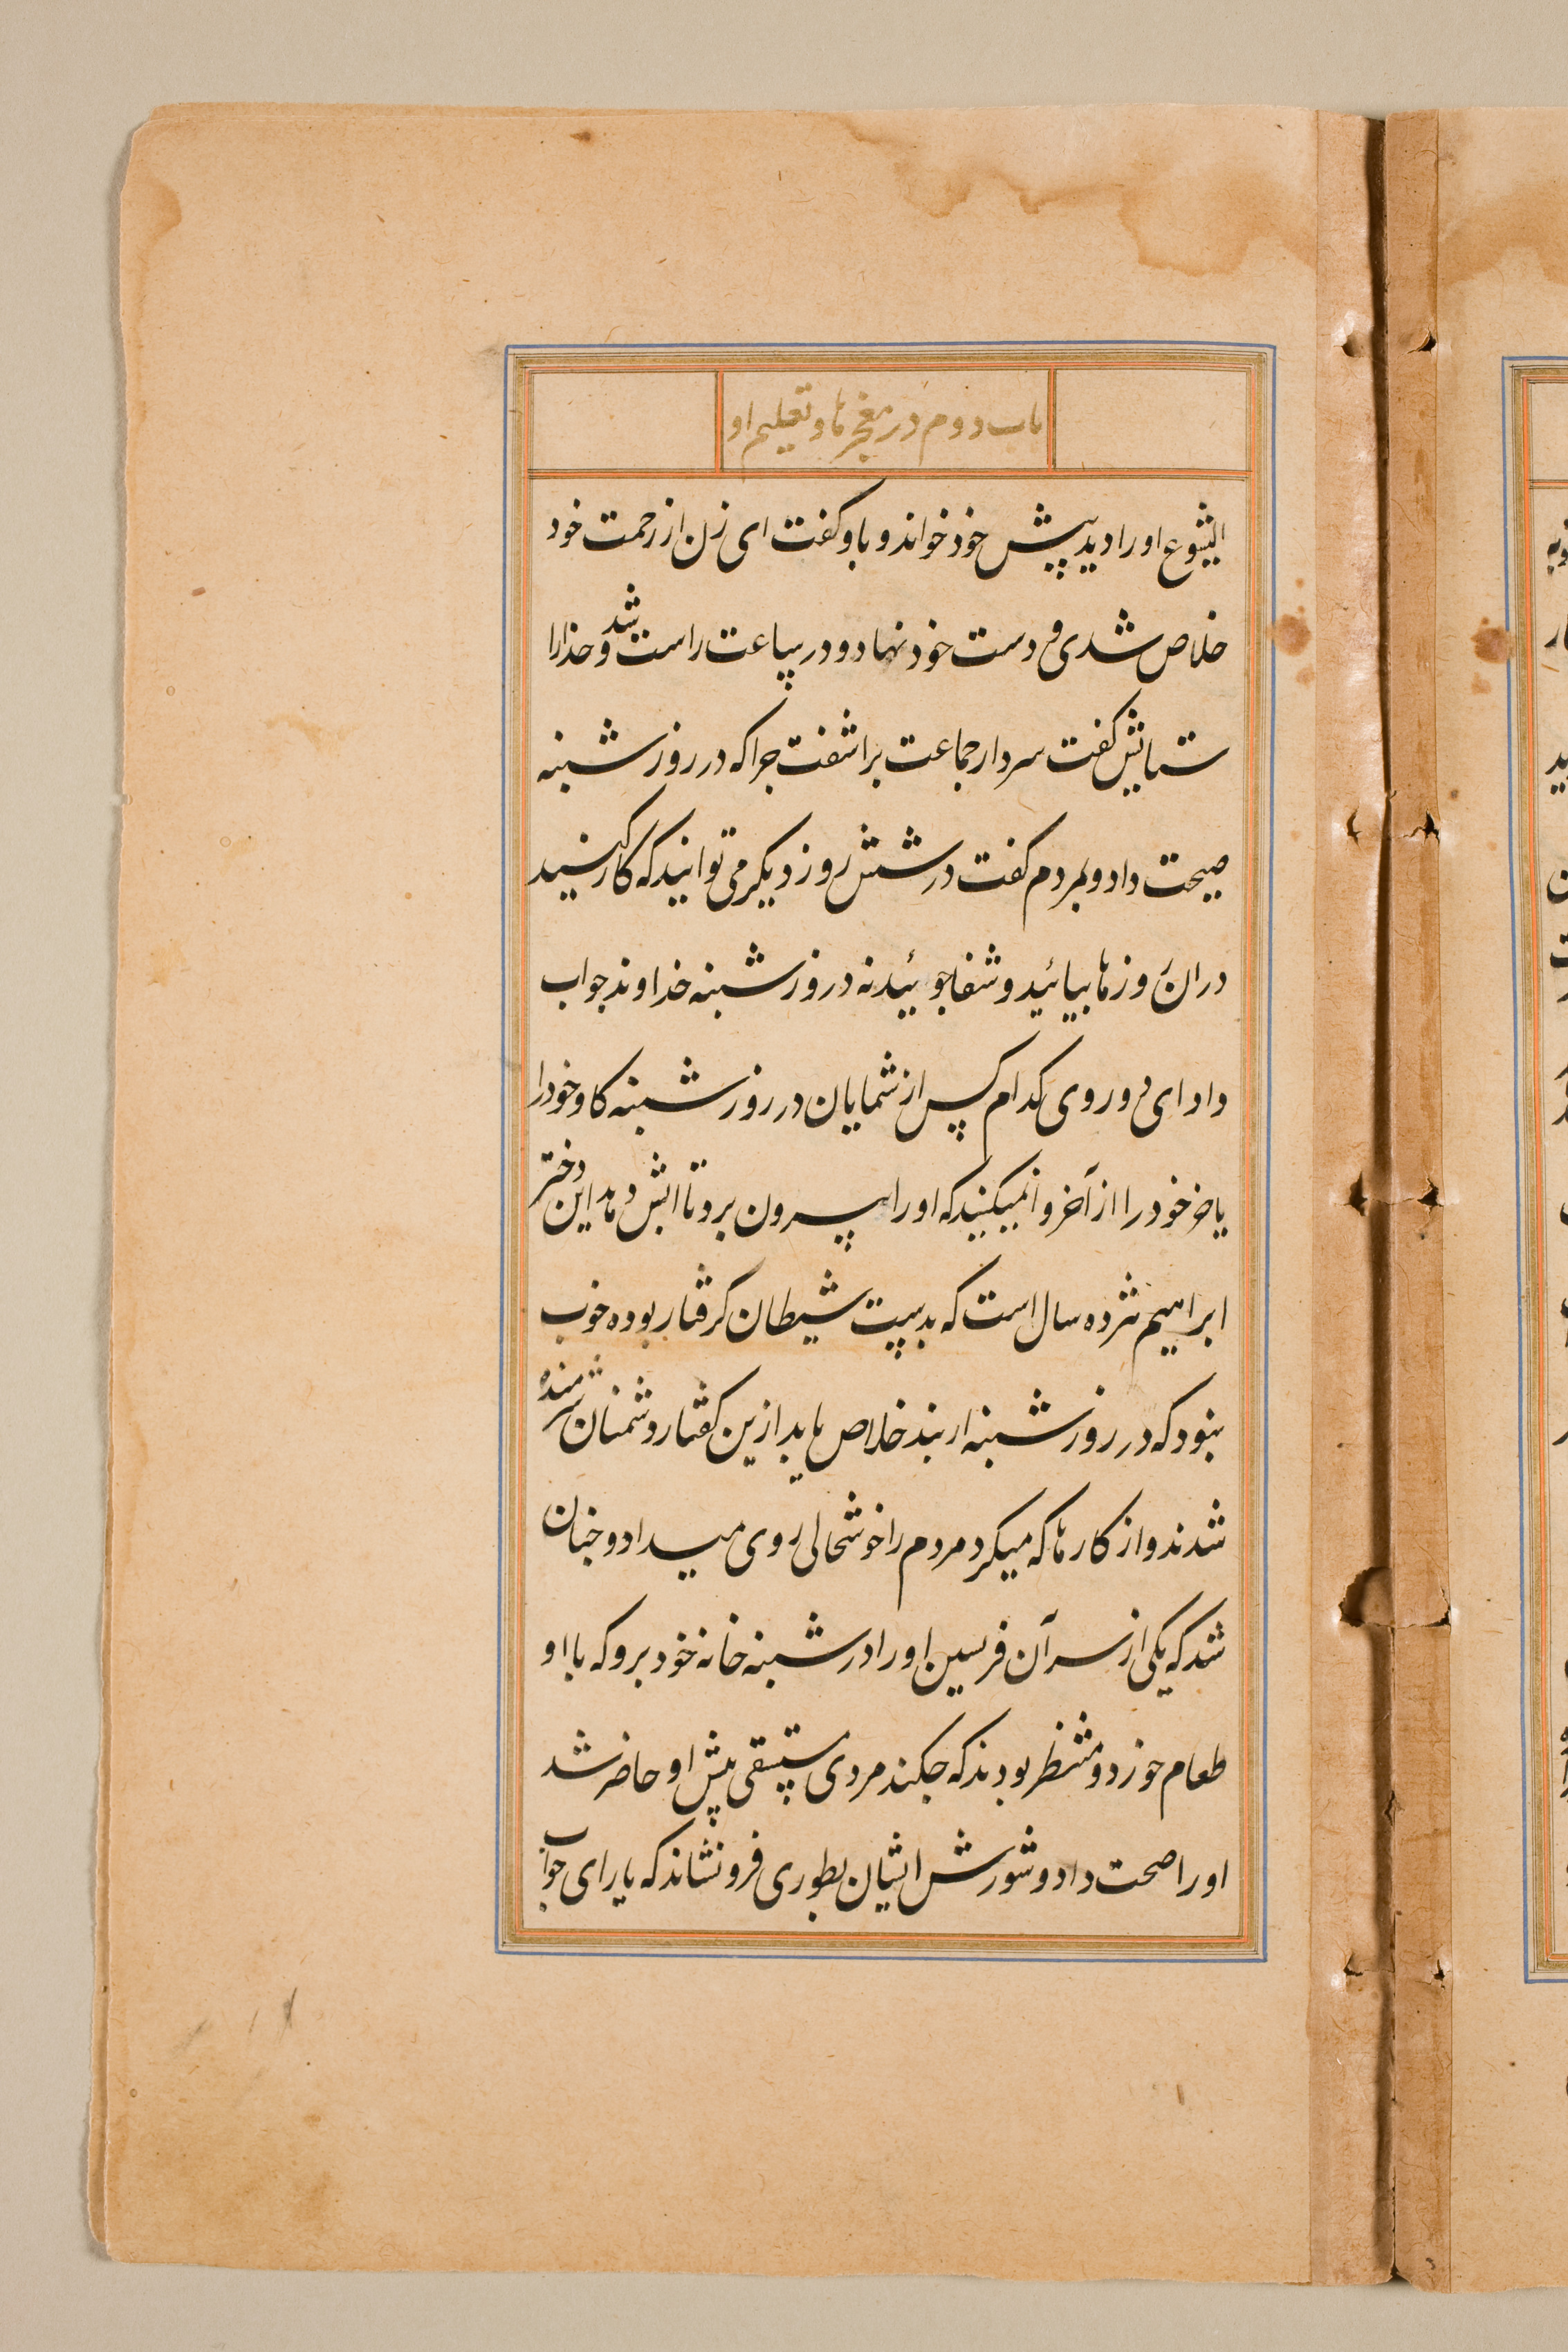 باب دوم در معجزها و تعلیم او
ایشوع او را دید پیش خود خواند و باو گفت ای زن از زحمت خود
خلاص شدی و دست خود نهاد و در سیاعت راست شد و خدا را
ستایش گفت سردار جماعت براشفت چرا که در روز شنبه
صحت داد و بمردم گفت در شش روز دیگر می توانید که کار کنید
دران روزها بیائید و شفا جوئید نه در روز شنبه خداوند جواب
داد ای دو روی کدام کس از شمایان در روز شنبه کاو خود را
یا خر خود را از آخر وا نمیکنید که او را بیرون برد تا آبش دهد این دختر
ابراهیم هژده سال است که بدست شیطان گرفتار بوده خوب
نبود که در روز شنبه از بند خلاص یابد ازین گفتار دشمنان شرمنده
شدند و از کارها که میکرد مردم را خوشحالی روی میداد و چنان
شد که یکی از سرآن فریسین او را در شنبه خانه خود برد که با او
طعام خورد و منتظر بودند که چکند مردی مستسقی پیش او حاضر شد
او را صحت داد و شورش ایشان بطوری فرو نشاند که یارای جواب